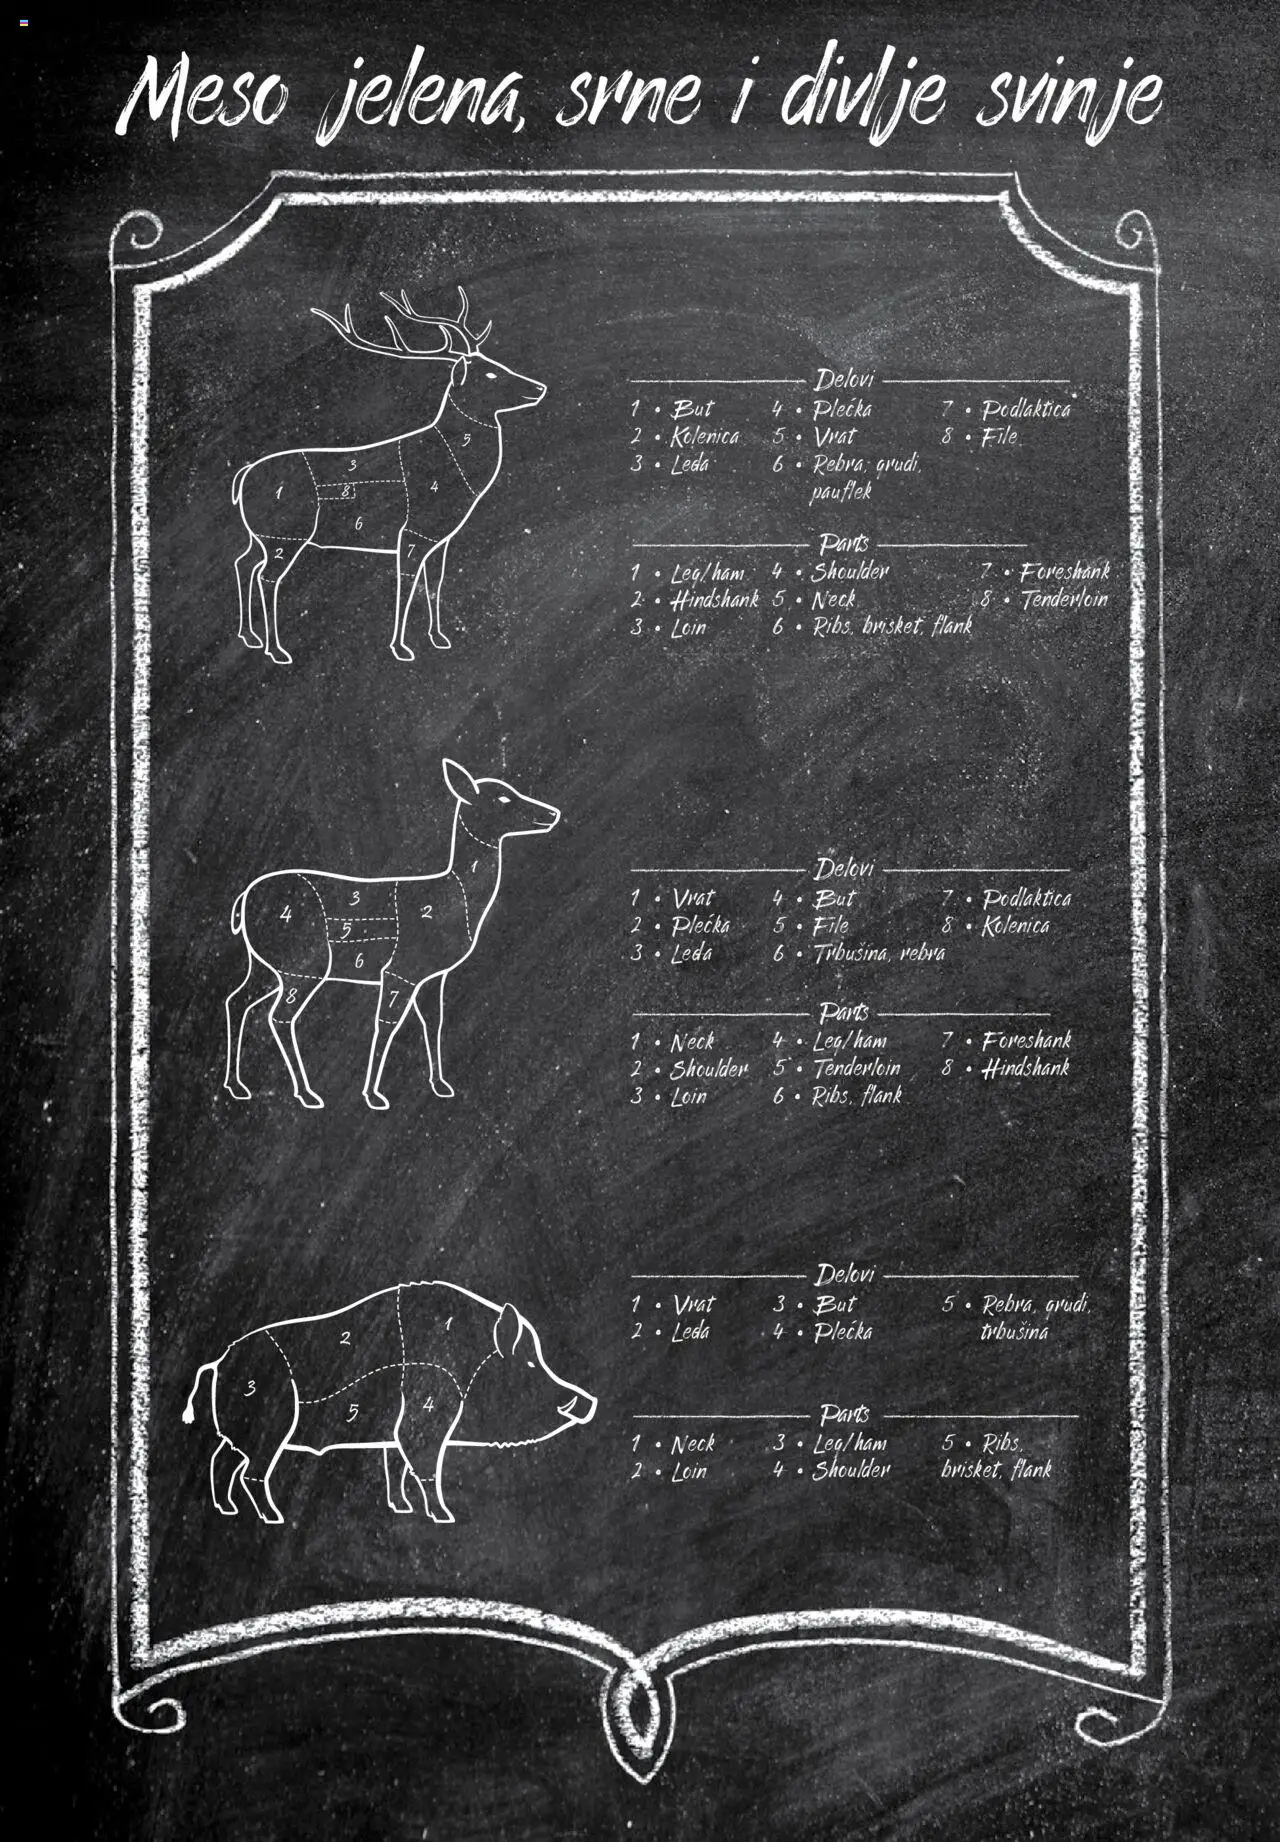 Meso jelena, srne i divlje svinje
5
3
1
8
4
6
2
7
Delovi
1 • But 4 • Plećka 7 • Podlaktica
2 • Kolenica 5 • Vrat 8 • File
3 • Leđa 6 • Rebra, grudi,
pauflek
Parts
1 • Leg/ham 4 • Shoulder 7 • Foreshank
2 • Hindshank 5 • Neck 8 • Tenderloin
3 • Loin 6 • Ribs, brisket, flank
1
3
4
2
5
6
8
7
Delovi
1 • Vrat 4 • But 7 • Podlaktica
2 • Plećka 5 • File 8 • Kolenica
3 • Leđa 6 • Trbušina, rebra
Parts
1 • Neck 4 • Leg/ham 7 • Foreshank
2 • Shoulder 5 • Tenderloin 8 • Hindshank
3 • Loin 6 • Ribs, flank
1
2
3
5
4
Delovi
1 • Vrat 3 • But 5 • Rebra, grudi,
2 • Leđa 4 • Plećka trbušina
Parts
1 • Neck 3 • Leg/ham 5 • Ribs,
2 • Loin 4 • Shoulder brisket, flank